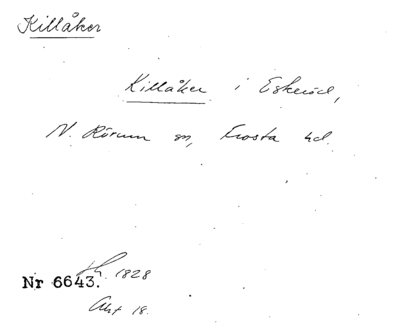 Killåker
Killåker i Eskeröd,
N. Rörum sn, Frosta hd.
Nr 6643. sk. 1828
Akt 18.